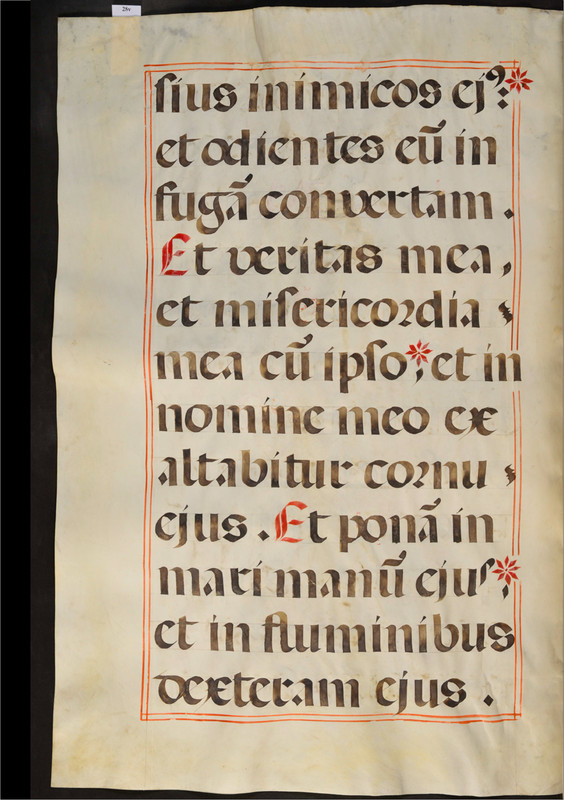 28v
ſius inimicos ej⁹: *
et odientes eũ in
fugã convertam .
Et veritas mea,
et miſericoꝛdia
mea cũ ipſo; * et in
nomine meo ex
altabitur coꝛnu
ejus . Et ponã in
mari manũ ejuſ; *
et in fluminibus
dexteram ejus .